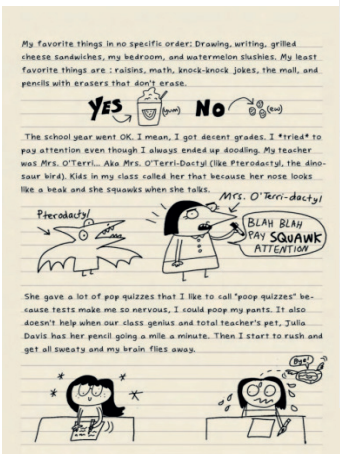 My favorite things in no specific order: Drawing, writing, grilled
cheese sandwiches, my bedroom, and watermelon slushies. My least
favorite things are : raisins, math, knock-knock jokes, the mall, and
pencils with erasers that don't erase.
YES (yum) NO (ew)
The school year went OK. I mean, I got decent grades. I *tried* to
pay attention even though I always ended up doodling. My teacher
was Mrs. O'Terri... Aka Mrs. O'Terri-Dactyl (like Pterodactyl, the dino-
saur bird). Kids in my class called her that because her nose looks
like a beak and she squawks when she talks.
Mrs. O'Terri-dactyl
Pterodactyl
BLAH BLAH
PAY SQUAWK
ATTENTION
She gave a lot of pop quizzes that I like to call "poop quizzes" be-
cause tests make me so nervous, I could poop my pants. It also
doesn't help when our class genius and total teacher's pet, Julia
Davis has her pencil going a mile a minute. Then I start to rush and
get all sweaty and my brain flies away.
Bye!